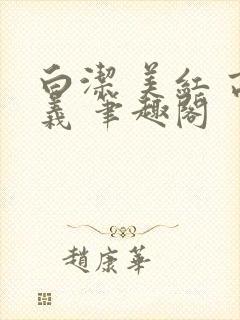 白潔 美紅 高
義 筆趣閣
趙康華